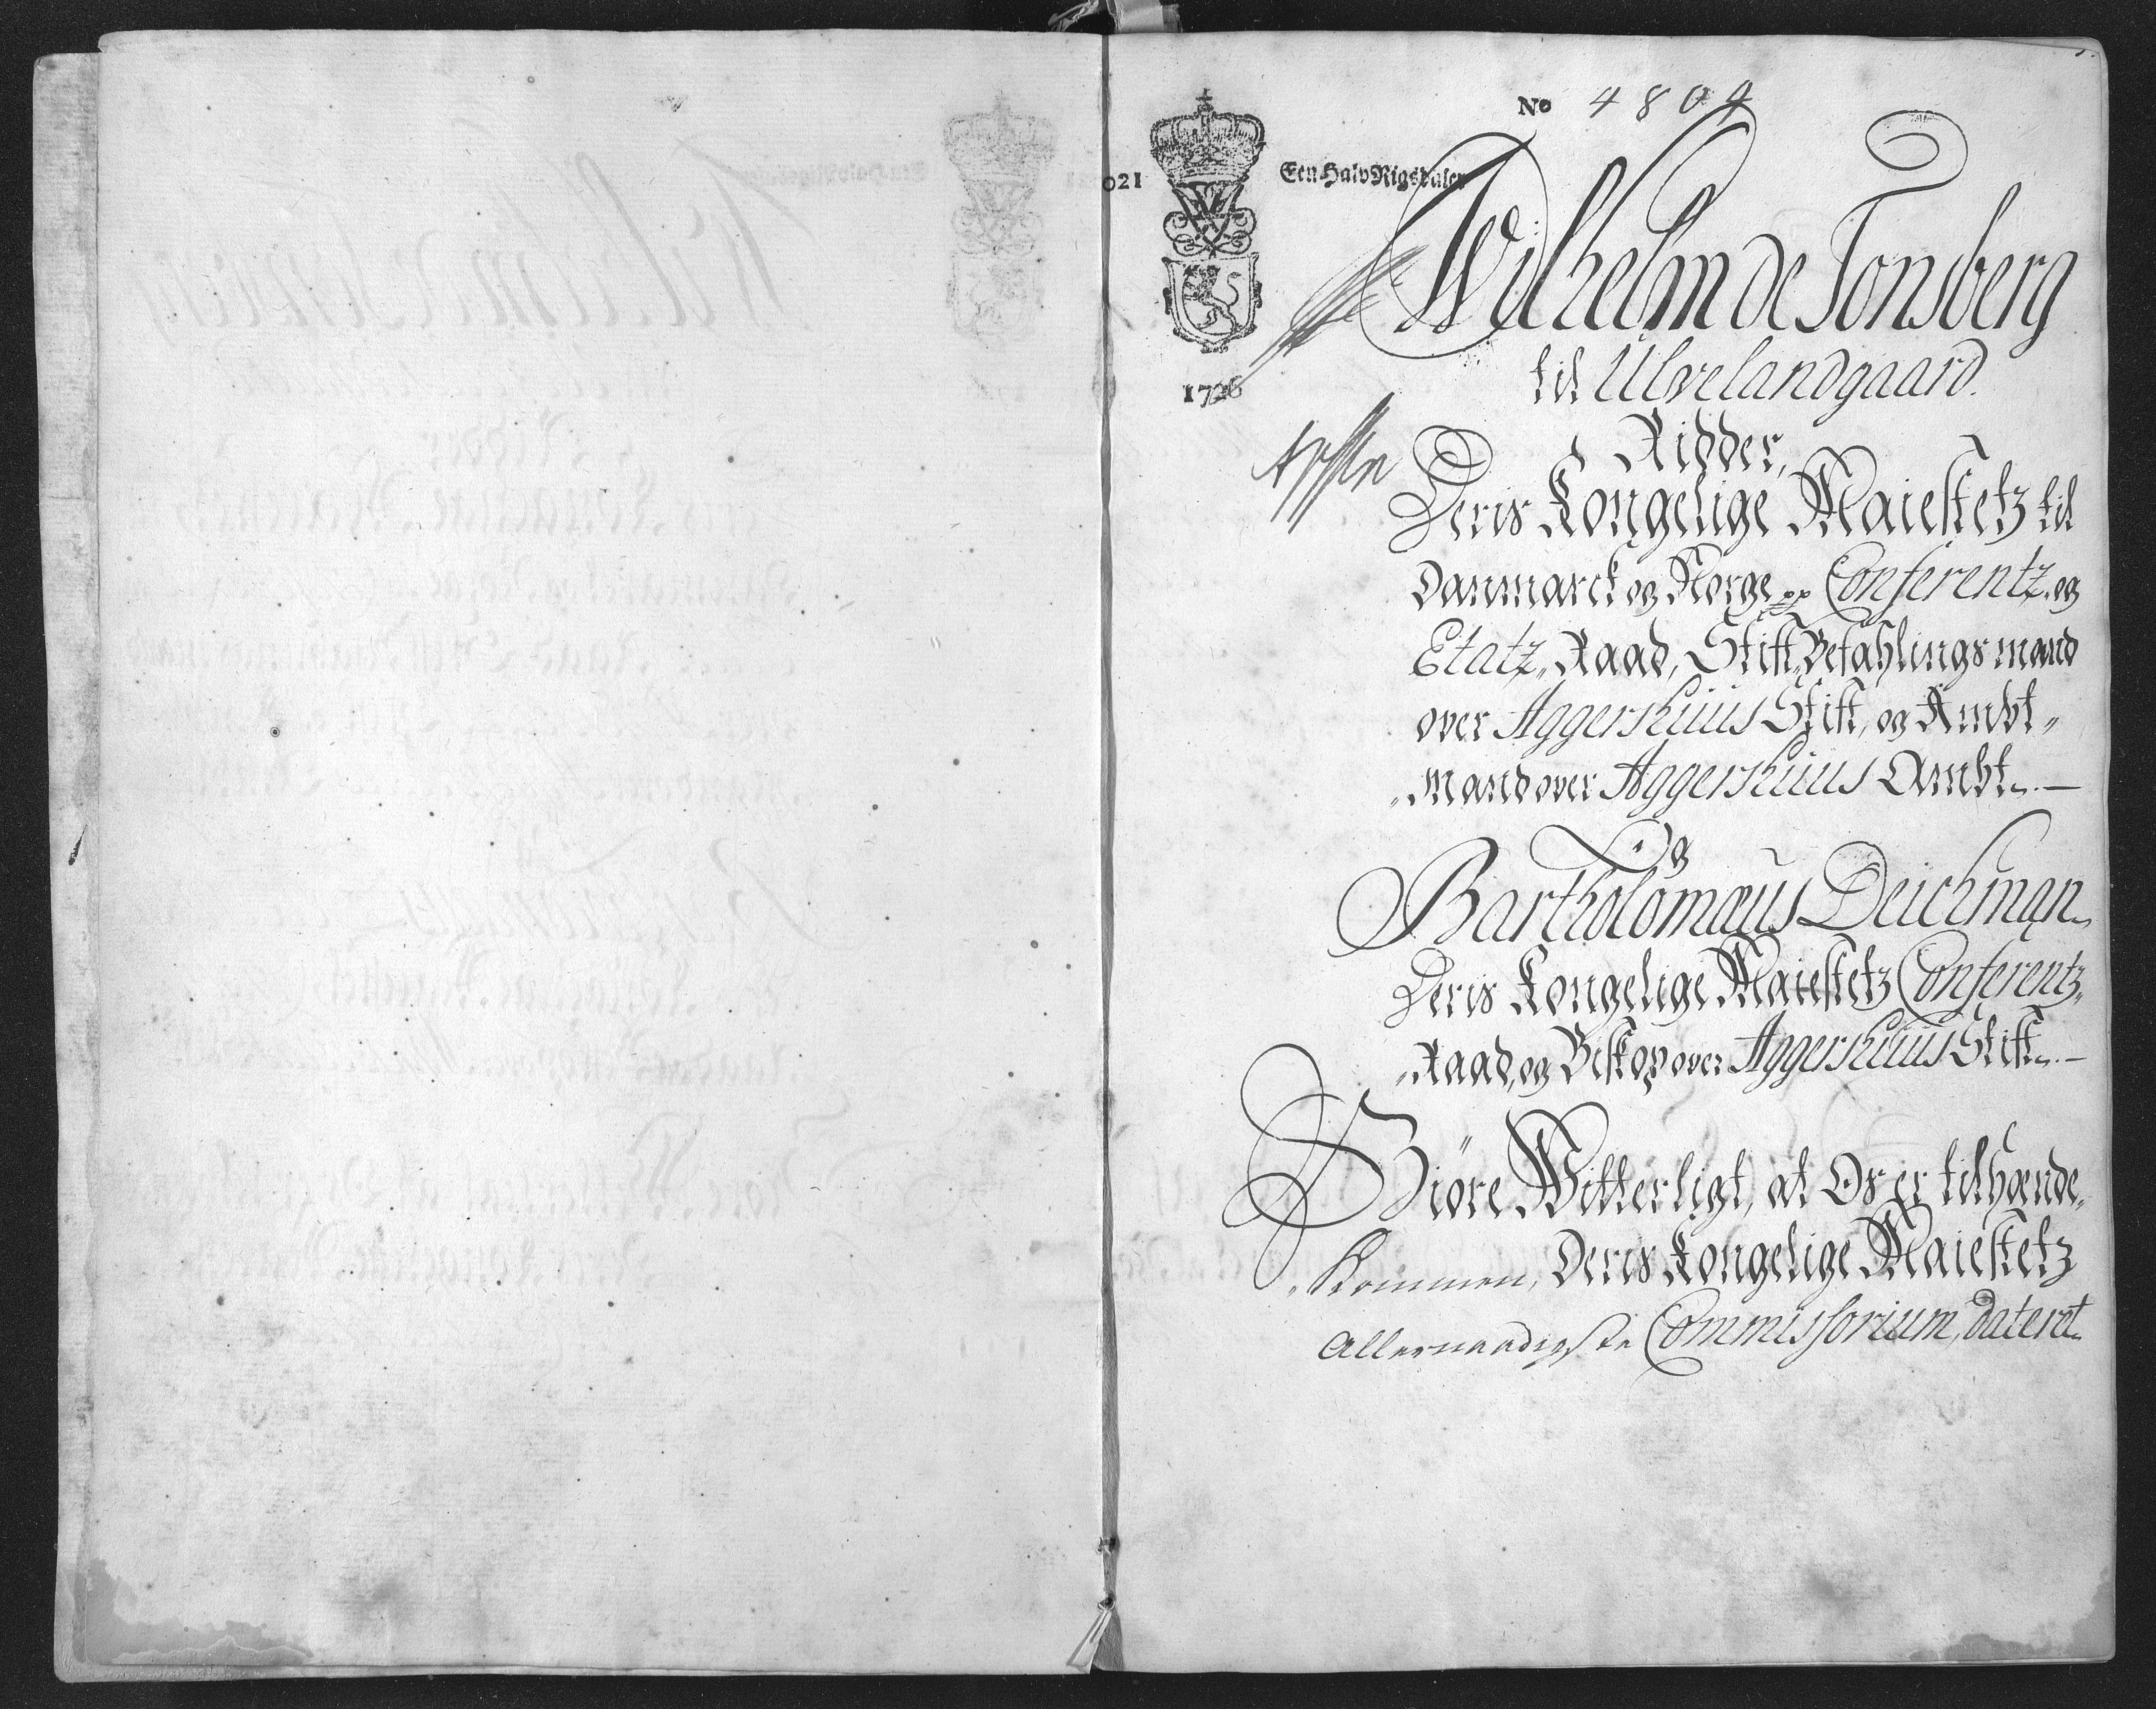 No 4804
021
Een Halv Rigsdaler
Wilhelm de Tonsberg
til Ulvelandgaard.
1726
Ridder,
Deris Kongelige Maiestetz til
Danmarck og Norge pp Conferentz og
Etatz„ Raad, Stift„ Befahlings mand
over Aggershuus Stift, og Ambt„
„mand over Aggershuus Ambt. —
Og
Bartholomæus Deichman
Deris Kongelige Maiestetz Conferentz„
„Raad, og Biskop over Aggershuus Stift. —
Giöre Witterligt, at Os er tilhænde„
„kommen, Deris Kongelige Maiestetz
Allernaadigste Commissorium, dateret